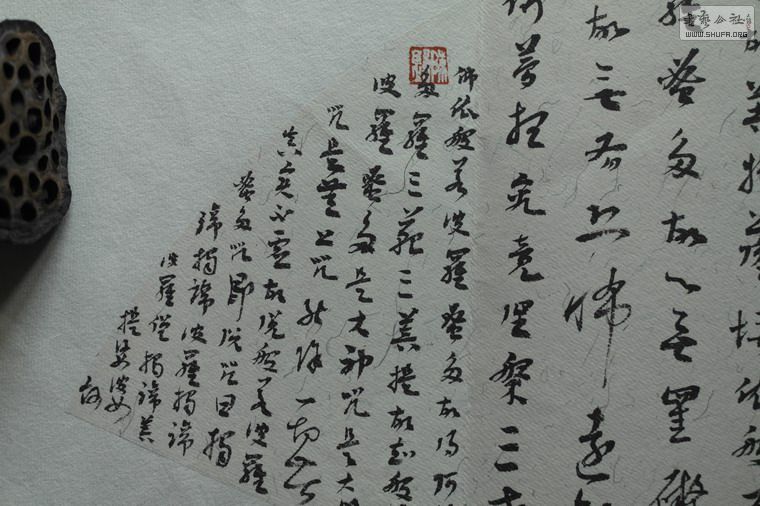 故菩提薩埵依般
羅蜜多故心無罣礙
故無有恐怖遠
夢想究竟涅槃三世
佛依般若波羅蜜多故得阿
多羅三藐三菩提故知般
波羅蜜多是大神咒是大
咒是無上咒能除一切苦
真實不虛故說般若波羅
蜜多咒即說咒曰揭
諦揭諦波羅揭諦
波羅僧揭諦菩
提娑婆
訶
WWW.SHUFA.ORG